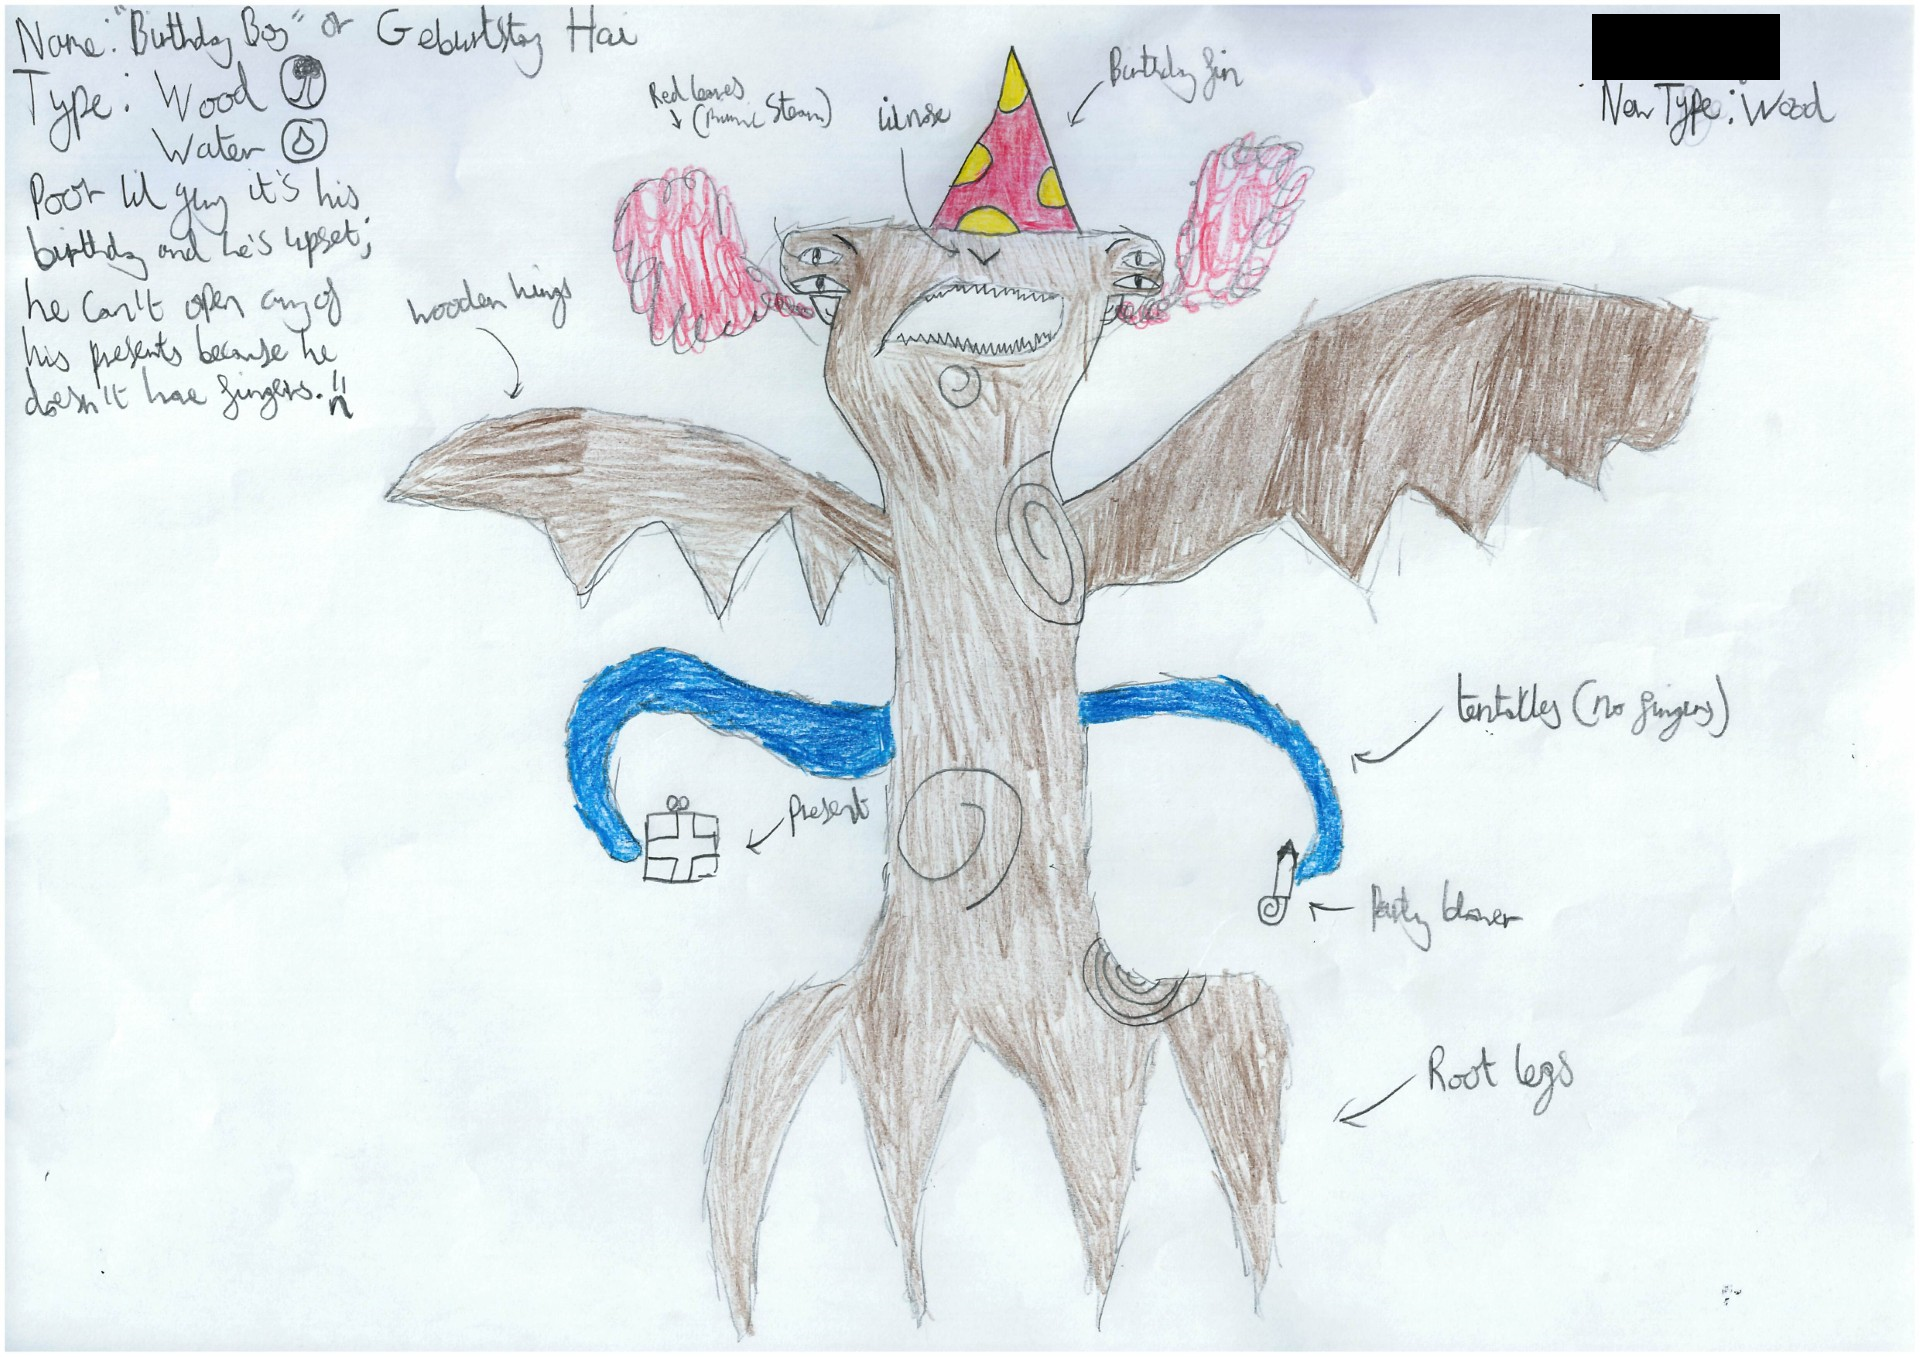 Name: "Birthday Boy" or Geburtstag Hai
Type: Wood
Water
Poor lil guy it's his
birthday and he's upset;
he can't open any of
his presents because he
doesn't have fingers.
New Type: Wood
Red leaves
(Steam)
lil nose
Birthday fin
wooden wings
tentalles (no fingers)
present
Party blower
Root legs